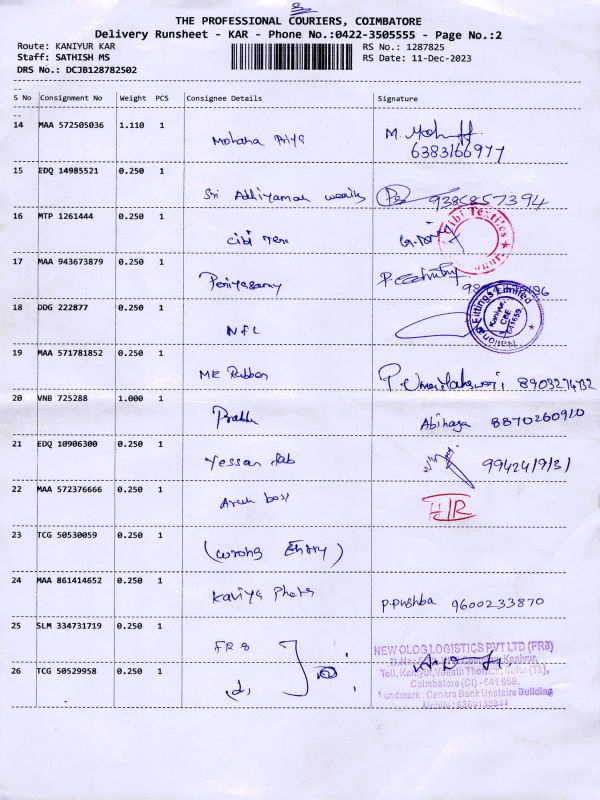 THE PROFESSIONAL COURIERS, COIMBATORE
Delivery Runsheet - KAR - Phone No.:0422-3505555 - Page No.:2
Route: KANIYUR KAR
RS No.: 1287825
Staff: SATHISH MS
RS Date: 11-Dec-2023
DRS No.: DCJB128782502
S No Consignment No Weight PCS Consignee Details Signature
14 MAA 572505036 1.110 1 Mohana Priya M. 
6383166977
15 EDQ 14985521 0.250 1 Sri Adhiyaman 9385857394
16 MTP 1261444 0.250 1 Cibi Tex
Cibi Textiles
17 MAA 943673879 0.250 1 Periyasamy P.
18 DDG 222877 0.250 1 NFL
Fittings Limited
Kaniyur,
CBE
641659.
19 MAA 571781852 0.250 1 MR Rubber P. Umamaheswari 8903274732
20 VNB 725288 1.000 1 Prabhu Abinaya 8870260920
21 EDQ 10906300 0.250 1 Yessan Fab 9942419131
22 MAA 572376666 0.250 1 box H/R
23 TCG 50530059 0.250 1 (Wrong Entry)
24 MAA 861414652 0.250 1 Kaviya Photo P. Pushba 9600233870
25 SLM 334731719 0.250 1 FRB
NEW OLOG LOGISTICS PVT LTD (FRB)
Kaniyur,
26 TCG 50529958 0.250 1
Toll, Kaniyur, (Tk),
Coimbatore (Dt) - 641 659.
Landmark : Canara Bank Upstairs Building